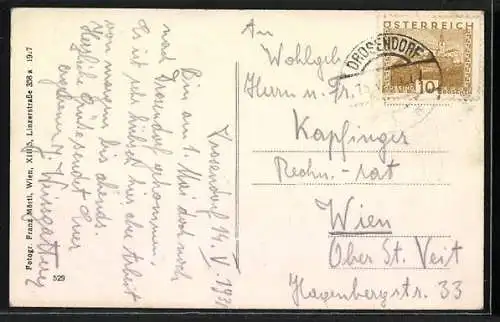 Drosendorf 14. V. 193
Bin am 1. Mai doch noch
nach Drosendorf gekommen.
Es ist sehr hübsch hier aber Arbeit
von morgens bis abends.
Herzliche Grüße sendet Euer
ergebener J. Weingartner
Fotogr. Franz Mörtl, Wien, XIII/5, Linzerstraße 358a 1917
529
ÖSTERREICH
10
DROSENDORF
An
Wohlgeb.
Herrn u. Fr.
Kapfinger
Rechn.-rat
Wien
Ober St. Veit
Hagenbergstr. 33